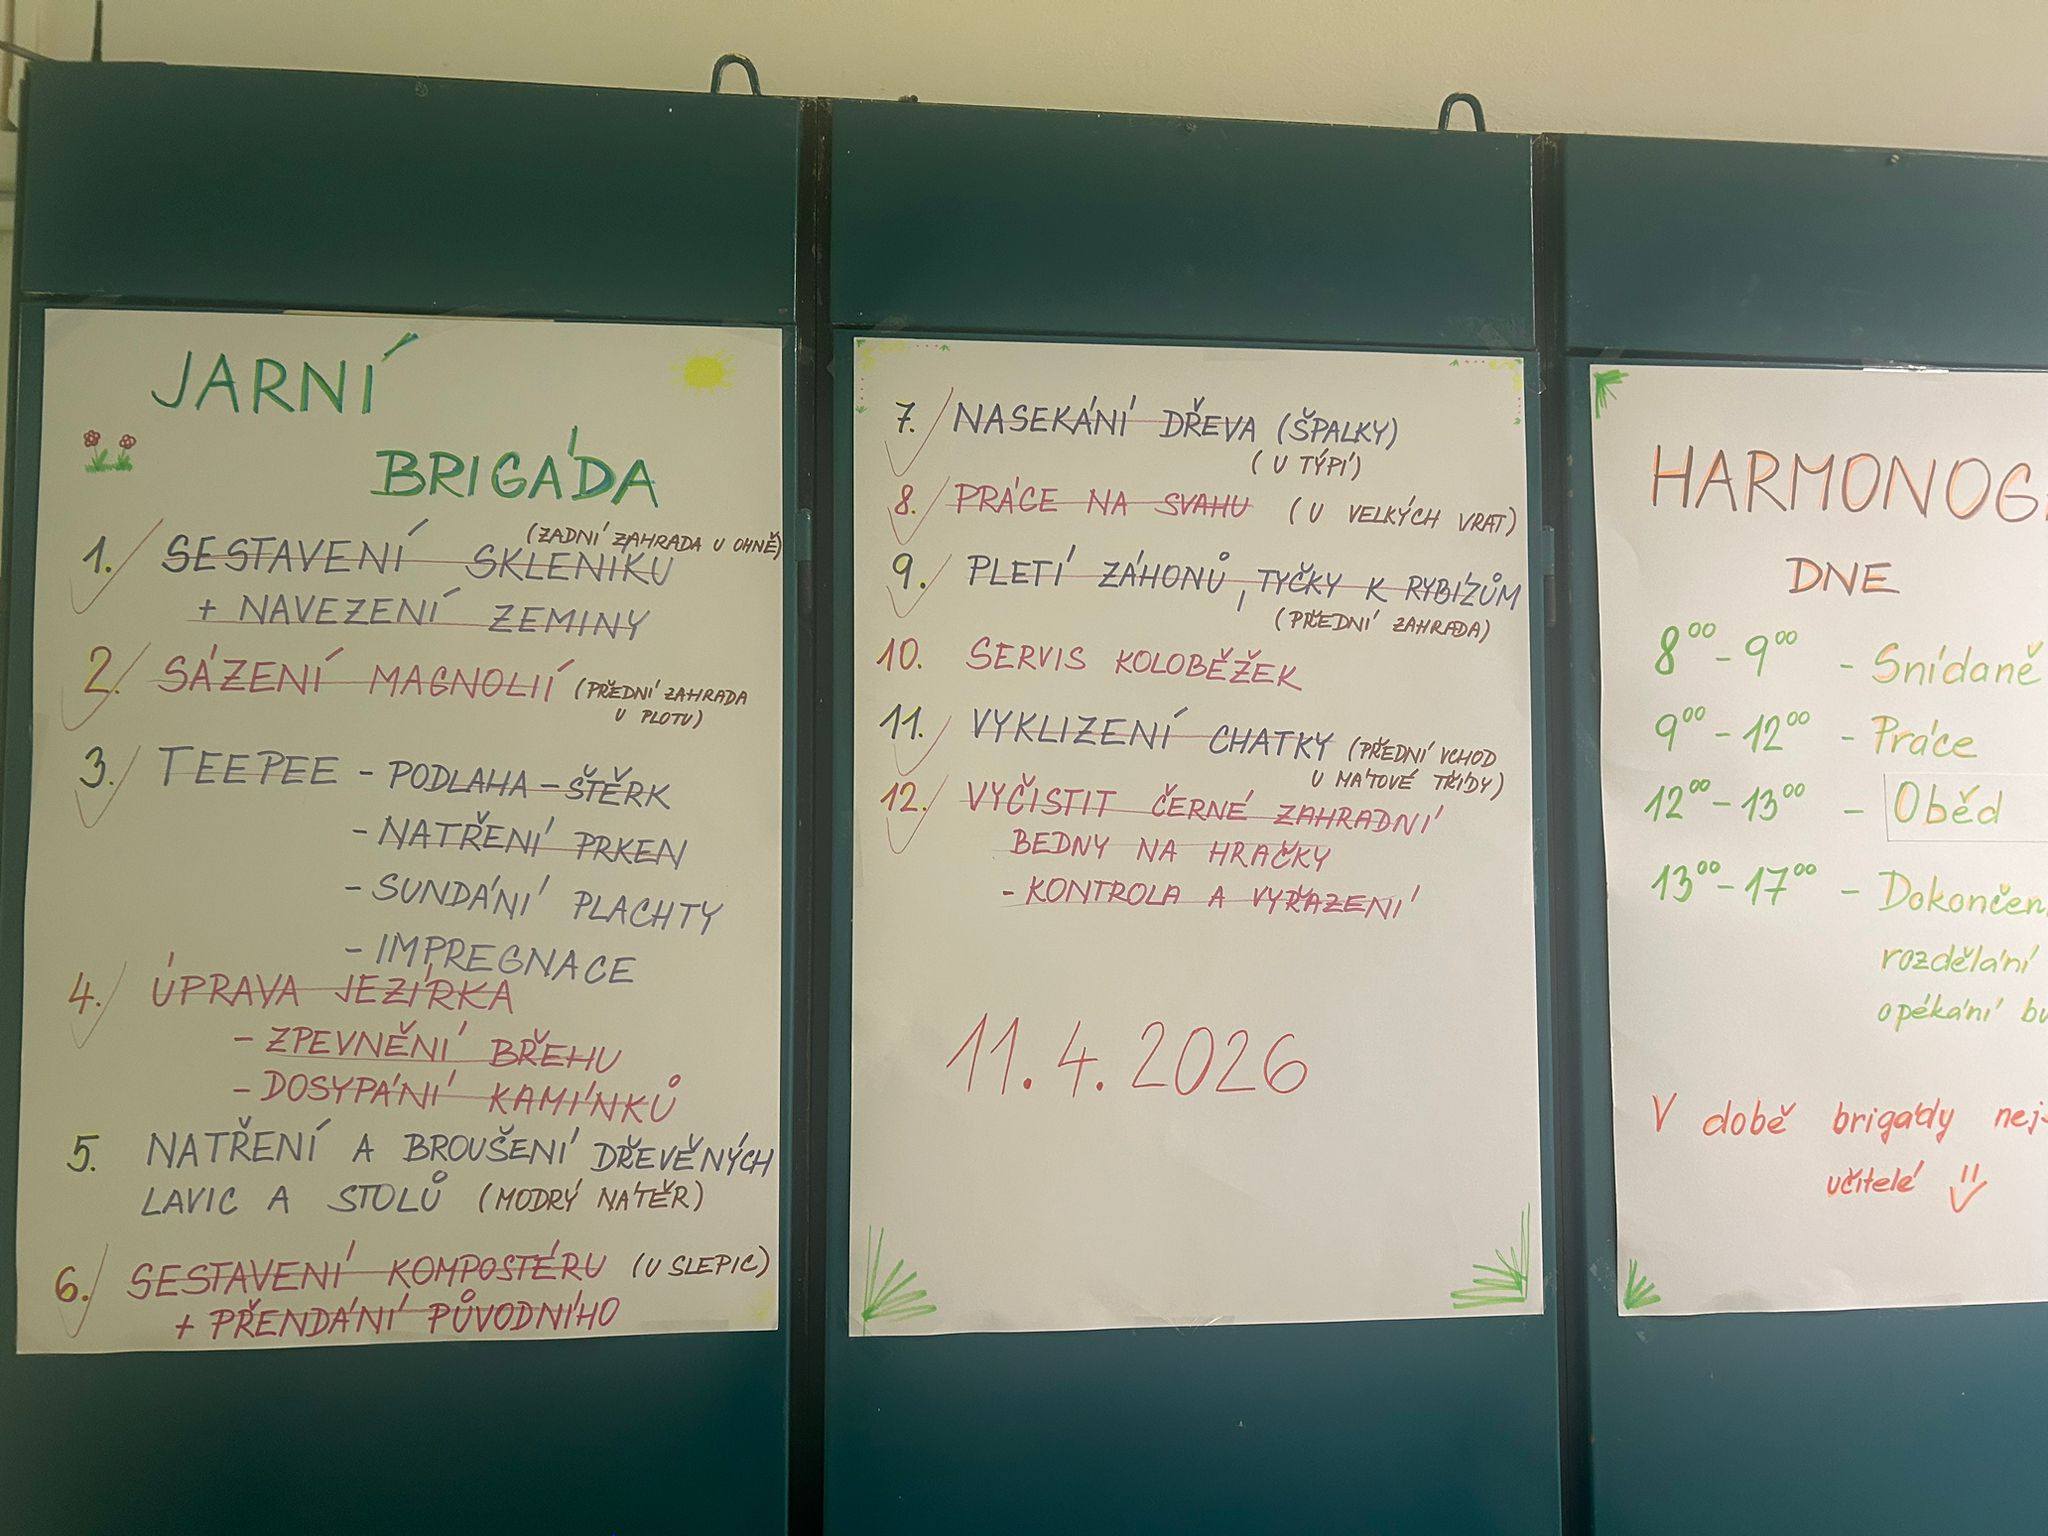 JARNÍ
BRIGÁDA
1. SESTAVENÍ SKLENÍKU (ZADNÍ ZAHRADA U OHNĚ)
+ NAVEZENÍ ZEMINY
2. SÁZENÍ MAGNOLIÍ (PŘEDNÍ ZAHRADA
U PLOTU)
3. TEEPEE - PODLAHA - ŠTĚRK
- NATŘENÍ PRKEN
- SUNDÁNÍ PLACHTY
- IMPREGNACE
4. ÚPRAVA JEZÍRKA
- ZPEVNĚNÍ BŘEHU
- DOSYPÁNÍ KAMÍNKŮ
5. NATŘENÍ A BROUŠENÍ DŘEVĚNÝCH
LAVIC A STOLŮ (MODRÝ NÁTĚR)
6. SESTAVENÍ KOMPOSTÉRU (U SLEPIC)
+ PŘENDÁNÍ PŮVODNÍHO
7. NASEKÁNÍ DŘEVA (ŠPALKY)
(U TÝPÍ)
8. PRÁCE NA SVAHU (U VELKÝCH VRAT)
9. PLETÍ ZÁHONŮ, TYČKY K RYBÍZŮM
(PŘEDNÍ ZAHRADA)
10. SERVIS KOLOBĚŽEK
11. VYKLIZENÍ CHATKY (PŘEDNÍ VCHOD
U MÁTOVÉ TŘÍDY)
12. VYČISTIT ČERNÉ ZAHRADNÍ
BEDNY NA HRAČKY
- KONTROLA A VYŘAZENÍ
11.4.2026
HARMONOG
DNE
8⁰⁰ - 9⁰⁰ - Snídaně
9⁰⁰ - 12⁰⁰ - Práce
12⁰⁰ - 13⁰⁰ - Oběd
13⁰⁰ - 17⁰⁰ - Dokončen
rozdělání
opékání bu
V době brigády nej
učitelé